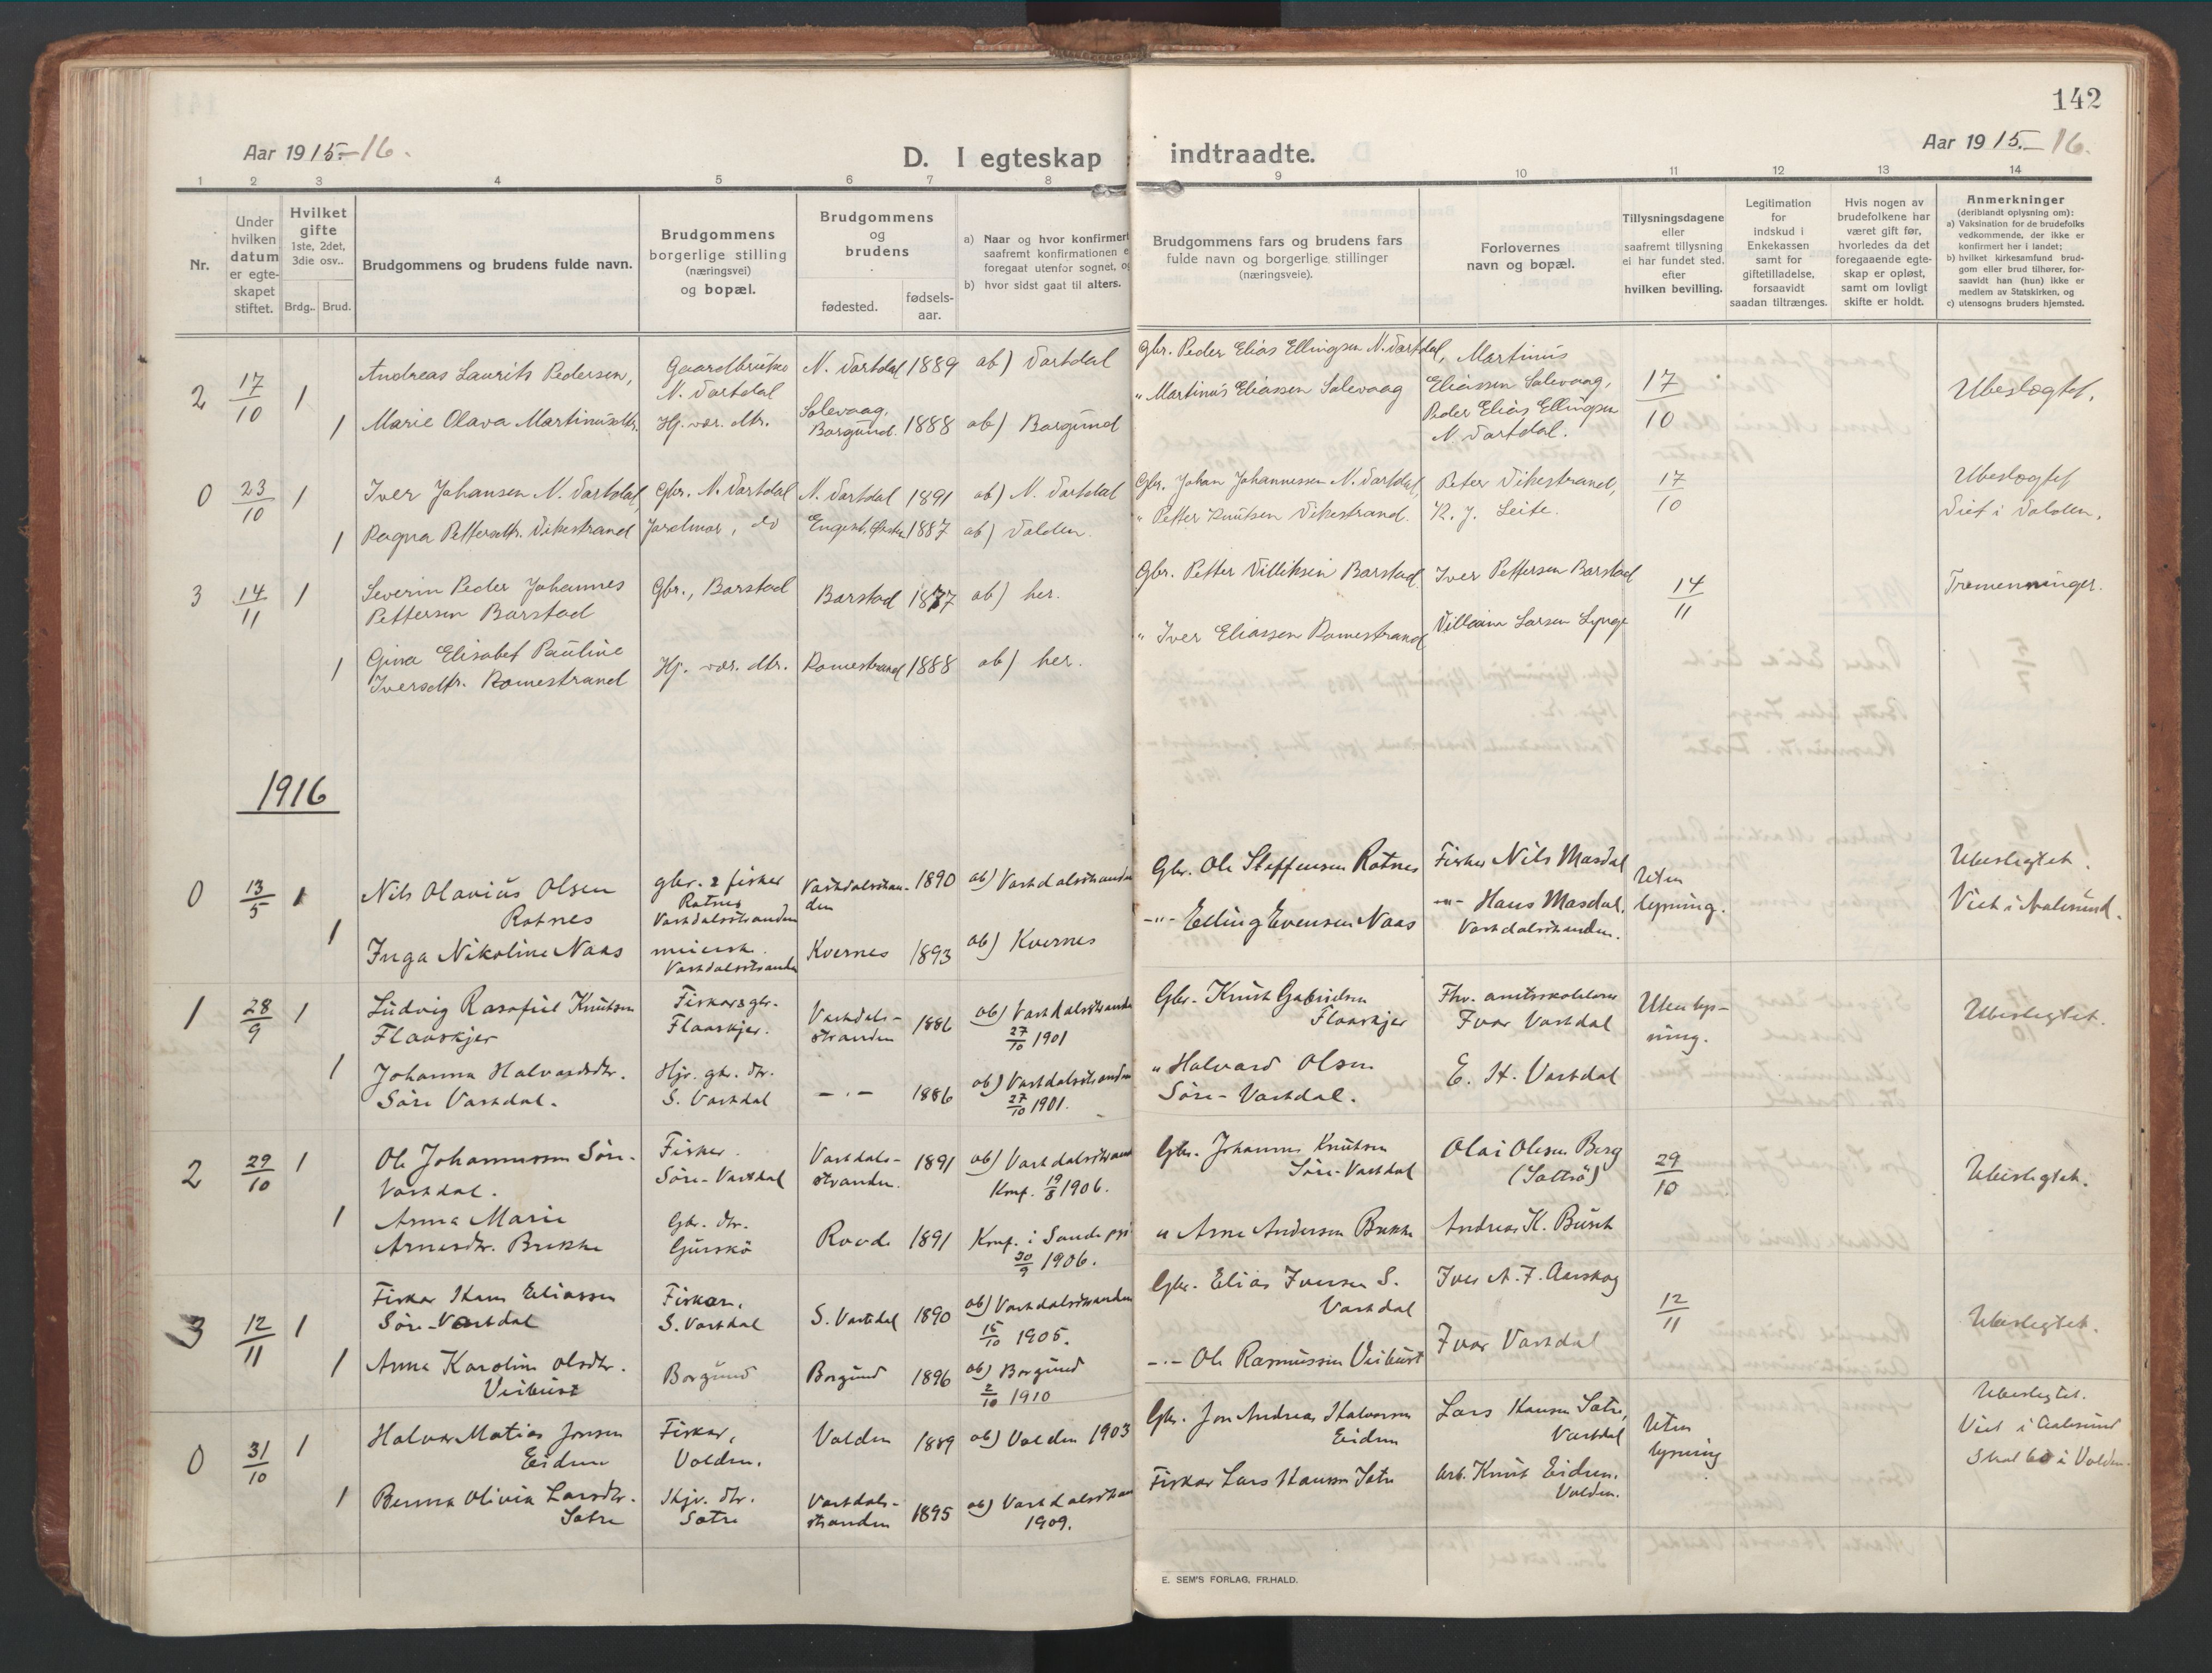 142
Aar 1915.-16.
D. I egteskap indtraadte.
Aar 1915.-16.
1 2 3 4 5 6 7 8 9 10 11 12 13 14
Nr.
Under hvilken datum er egte-skapet stiftet.
Hvilket gifte 1ste, 2det, 3die osv..
Brdg.. Brud.
Brudgommens og brudens fulde navn.
Brudgommens borgerlige stilling (næringsvei) og bopæl.
Brudgommens og brudens
fødested.
fødsels-aar.
a) Naar og hvor konfirmert
saafremt konfirmationen e
foregaat utenfor sognet, og
b) hvor sidst gaat til alters.
Brudgommens fars og brudens fars
fulde navn og borgerlige stillinger
(næringsveie).
Forlovernes
navn og bopæl.
Tillysningsdagene
eller
saafremt tillysning
ei har fundet sted,
efter
hvilken bevilling.
Legitimation
for
indskud i
Enkekassen
samt for
giftetilladelse,
forsaavidt
saadan tiltrænges.
Hvis nogen av
brudefolkene har
været gift før,
hvorledes da det
foregaaende egte-
skap er opløst,
samt om lovligt
skifte er holdt.
Anmerkninger
(deriblandt oplysning om):
a) Vaksination for de brudefolks
vedkommende, der ikke er
konfirmert her i landet;
b) hvilket kirkesamfund brud-
gom eller brud tilhører, for-
saavidt han (hun) ikke er
medlem av Statskirken, og
c) utensogns bruders hjemsted.
2 17/10 1 Andreas Laurits Pedersen, Gaardbruker N. Vartdal N. Vartdal 1889 ab) Vartdal Gbr. Peder Elias Ellingsen N. Vartdal, Martinus Eliassen Solevaag, 17/10 Ubeslegtet.
1 Marie Olava Martinusdtr. Hj. vær. dtr. Solevaag, Borgund. 1888 ab) Borgund " Martinus Eliassen Solevaag Peder Elias Ellingsen N. Vartdal.
0 23/10 1 Iver Johansen N. Vartdal, Gbr. N. Vartdal N. Vartdal 1891 ab) N. Vartdal Gbr. Johan Johannessen N. Vartdal, Peter Vikestrand, 17/10 Ubeslegtet
1 Ragna Pettersdtr. Vikestrand Jordmor, do 1887 ab) Volden. " Petter Knutsen Vikestrand. K. J. Leite. Viet i Volden.
3 14/11 1 Severin Peder Johannes Pettersen Barstad Gbr., Barstad Barstad 1877 ab) her. Gbr. Petter Villiksen Barstad Iver Pettersen Barstad 14/11 Tremenninger.
1 Gina Elisabet Pauline Iversdtr. Romestrand Hj. vær. dtr. Romestrand 1888 ab) her. " Iver Eliassen Romestrand Larsen
1916
0 13/5 1 Nils Olavius Olsen Rotnes gbr. & fisker Rotnes Vartdalsstranden Vartdalsstranden 1890 ab) Vartdalsstranden Gbr. Ole Steffensen Rotnes Fisker Nils Masdal Uten lysning. Ubeslegtet.
1 Inga Nikoline Naas meierske. Vartdalsstranden Kvernes 1893 ab) Kvernes -"- Elling Evensen Naas -"- Hans Masdal, Vartdalsstranden. Viet i Aalesund.
1 28/9 1 Ludvig Rasofiel Knutsen Flaaskjer Fisker & gbr. Flaaskjer. Vartdals-stranden 1886 ab) Vartdalsstranden 27/10 1901 Gbr. Knut Gabrielsen Flaaskjer Fhv. amtsskolelærer Ivar Vartdal Uten lys-ning. Ubeslegtet.
1 Johanna Halvardsdtr. Søre Vartdal. Hjv. gbr. dtr. S. Vartdal -.- 1886 ab) Vartdalsstranden 27/10 1901. " Halvard Olsen Søre-Vartdal. E. H. Vartdal
2 29/10 1 Ole Johannessen Søre-Vartdal. Fisker. Søre-Vartdal Vartdals-stranden. 1891 ab) Vartdalsstrand Konf. 19/8 1906. Gbr. Johannes Knutsen Søre-Vartdal Olai Olsen Berg 29/10 Ubeslegtet.
1 Anna Marie Arnesdtr. Brekke Gbr. dtr. Gurskø Rovde 1891 Konf. i Sande 30/9 1906. " Arne Andersen Brekke Andreas K. Busk
3 12/11 1 Fisker Hans Eliassen Søre-Vartdal Fisker, S. Vartdal S. Vartdal 1890 ab) Vartdalsstranden 15/10 1905. Gbr. Elias Iversen S. Vartdal Iver A. F. Aarskog 12/11 Ubeslegtet.
1 Anna Karoline Olsdtr. Veibust Borgund Borgund 1896 ab) Borgund 2/10 1910 -.- Ole Rasmussen Veibust Ivar Vartdal
0 31/10 1 Halvar Matias Jonsen Eidem Fisker, Volden. Volden 1889 ab) Volden 1903 Gbr. Jon Andreas Halvorsen Eidem Lars Hansen Sætre, Vartdal Uten lysning Ubeslegtet. Viet i Aalesund Skal bo i Volden.
1 Berna Olivia Larsdtr. Sætre Hjv. dtr. Sætre Vartdals-stranden 1895 ab) Vartdalsstran 1909. Fisker Lars Hansen Sætre Arb. Knut Eidem. Volden.
E. SEM'S FORLAG, FR.HALD.